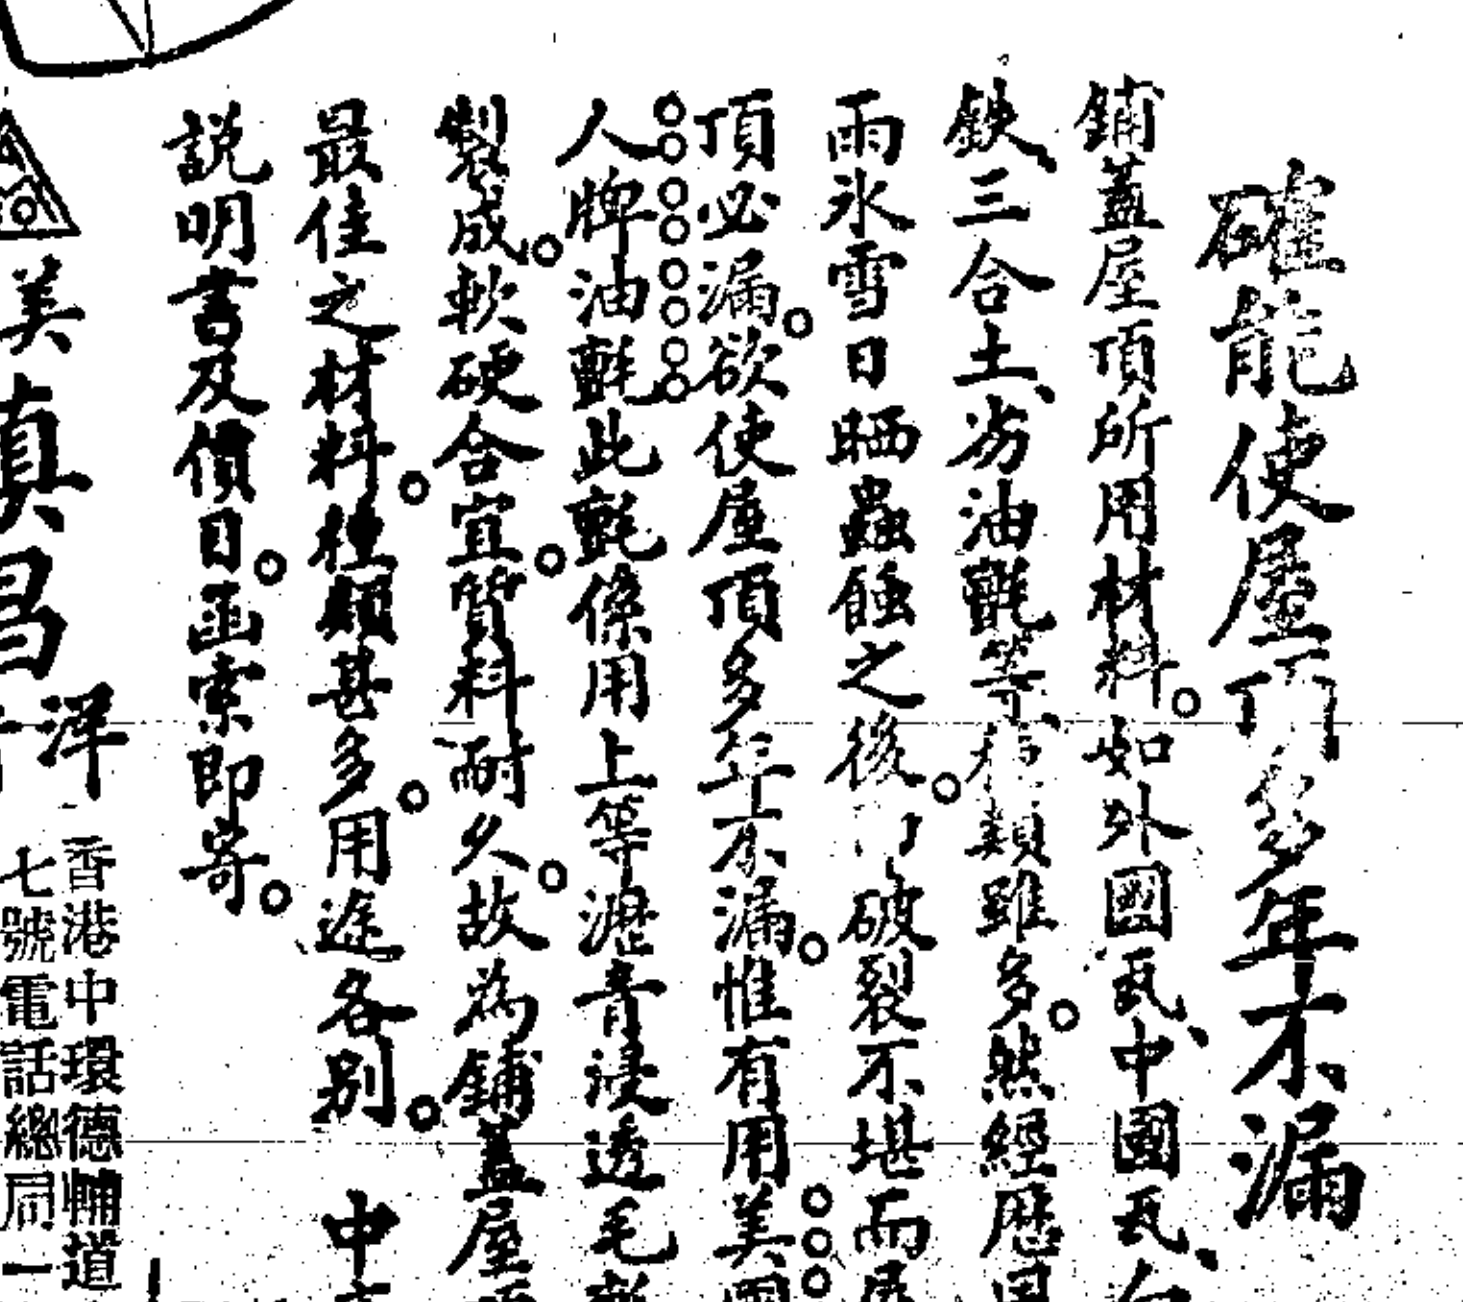 確能使屋頂多年不漏
鋪蓋屋頂所用材料。如外國瓦、中國瓦、白
鉄、三合土、芴油氈等、種類雖多。然經歴風
雨氷雪日晒蟲蝕之後。破裂不堪而屋
頂必漏。欲使屋頂多年不漏。惟有用美國
人牌油氈此氈係用上等瀝青浸透毛
製成。軟硬合宜。質料耐久。故為鋪蓋屋
最佳之材料。種類甚多。用途各别。 中
説明書及價目。函索即寄。
美
真昌洋
香港中環德輔道
七號電話總局一